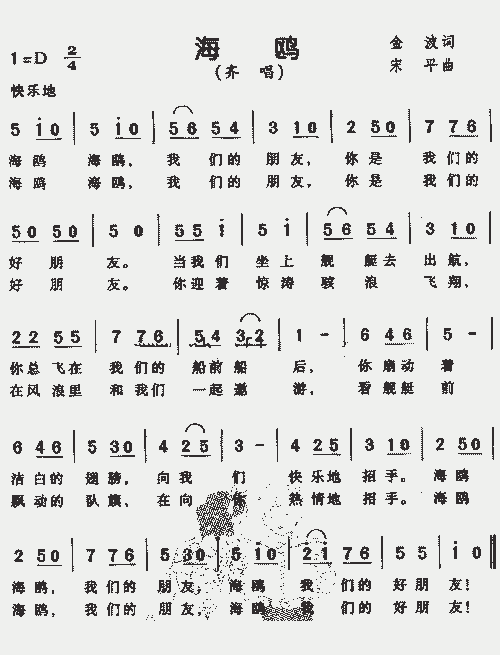 海 鸥
1=D 2/4
（齐 唱）
金 波 词
宋 平 曲
快乐地
5 i0 | 5 i0 | 56 54 | 3 10 | 2 50 | 7 76 |
海鸥 海鸥， 我 们的 朋友， 你是 我们的
海鸥 海鸥， 我 们的 朋友， 你是 我们的
50 50 | 5 0 | 55 i | 5 i | 56 54 | 3 10 |
好 朋 友。 当我 们 坐上 舰 艇去 出航，
好 朋 友。 你迎 着 惊涛 骇 浪 飞翔，
22 55 | 7 76 | 54 32 | 1 - | 6 46 | 5 - |
你总 飞在 我 们的 船前 船 后， 你扇动 着
在风 浪里 和 我们 一起 遨 游， 看舰艇 前
6 46 | 5 30 | 4 25 | 3 - | 4 25 | 3 10 | 2 50 |
洁 白的 翅膀， 向我 们 快乐地 招手。 海鸥
飘 动的 队旗， 在向 你 热情地 招手。 海鸥
2 50 | 7 76 | 5 30 | 5 i0 | 2i 76 | 5 5 | i 0 ‖
海鸥， 我 们的 朋友， 海鸥 我 们的 好朋 友！
海鸥， 我 们的 朋友， 海鸥 我 们的 好朋 友！